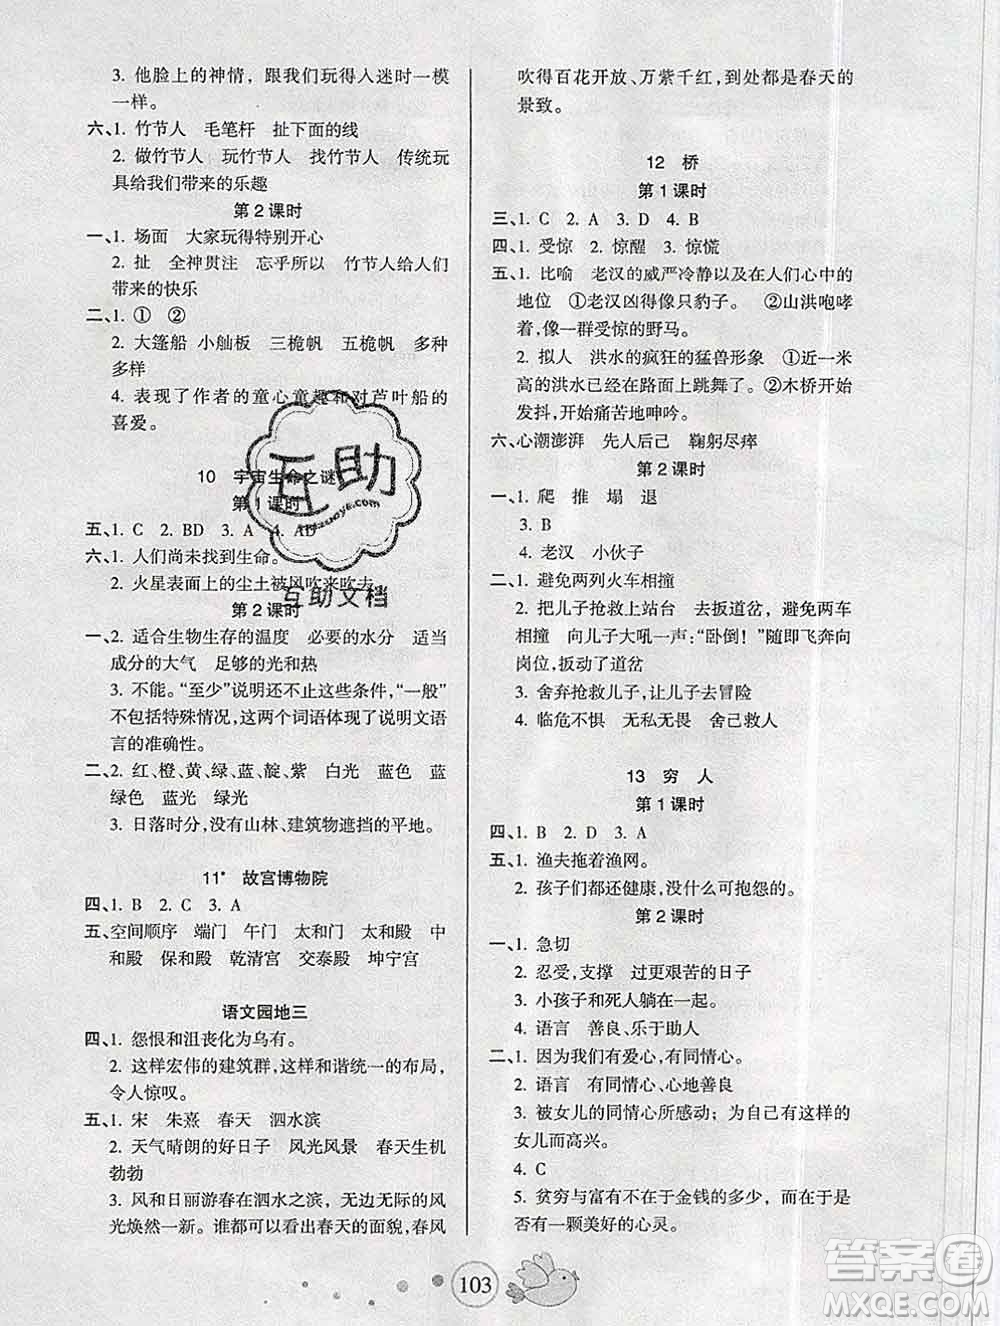 3. 他脸上的神情，跟我们玩得入迷时一模
一样。
六、1. 竹节人　毛笔杆　扯下面的线
2. 做竹节人　玩竹节人　找竹节人　传统玩
具给我们带来的乐趣
第 2 课时
一、1. 场面　大家玩得特别开心
2. 扯　全神贯注　忘乎所以　竹节人给人们
带来的快乐
二、1. ①　②
2. 大篷船　小舢板　三桅帆　五桅帆　多种
多样
4. 表现了作者的童心童趣和对芦叶船的
喜爱。
10　宇宙生命之谜
第 1 课时
五、1. C　2. BD　3. A　4. AD
六、1. 人们尚未找到生命。
2. 火星表面上的尘土被风吹来吹去。
第 2 课时
一、2. 适合生物生存的温度　必要的水分　适当
成分的大气　足够的光和热
3. 不能。“至少”说明还不止这些条件，“一般”
不包括特殊情况，这两个词语体现了说明文语
言的准确性。
二、2. 红、橙、黄、绿、蓝、靛、紫　白光　蓝色　蓝
绿色　蓝光　绿光
3. 日落时分，没有山林、建筑物遮挡的平地。
11*　故宫博物院
四、1. B　2. C　3. A
五、空间顺序　端门　午门　太和门　太和殿　中
和殿　保和殿　乾清宫　交泰殿　坤宁宫
语文园地三
四、1. 怨恨和沮丧化为乌有。
2. 这样宏伟的建筑群，这样和谐统一的布局，
令人惊叹。
五、1. 宋　朱熹　春天　泗水滨
2. 天气晴朗的好日子　风光风景　春天生机
勃勃
3. 风和日丽游春在泗水之滨，无边无际的风
光焕然一新。谁都可以看出春天的面貌，春风
吹得百花开放、万紫千红，到处都是春天的
景致。
12　桥
第 1 课时
三、1. C　2. A　3. D　4. B
四、1. 受惊　2. 惊醒　3. 惊慌
五、1. 比喻　老汉的威严冷静以及在人们心中的
地位　①老汉凶得像只豹子。　②山洪咆哮
着，像一群受惊的野马。
2. 拟人　洪水的疯狂的猛兽形象　①近一米
高的洪水已经在路面上跳舞了。②木桥开始
发抖，开始痛苦地呻吟。
六、心潮澎湃　先人后己　鞠躬尽瘁
第 2 课时
一、1. 爬　推　塌　退
3. B
4. 老汉　小伙子
二、1. 避免两列火车相撞
2. 把儿子抢救上站台　去扳道岔，避免两车
相撞　向儿子大吼一声：“卧倒！”随即飞奔向
岗位，扳动了道岔
3. 舍弃抢救儿子，让儿子去冒险
4. 临危不惧　无私无畏　舍己救人
13　穷　人
第 1 课时
四、1. B　2. D　3. A
五、1. 渔夫拖着渔网。
2. 孩子们都还健康，没什么可抱怨的。
第 2 课时
一、1. 急切
2. 忍受，支撑　过更艰苦的日子
3. 小孩子和死人躺在一起。
4. 语言　善良、乐于助人
二、1. 因为我们有爱心，有同情心。
2. 语言　有同情心、心地善良
3. 被女儿的同情心所感动；为自己有这样的
女儿而高兴。
4. C
5. 贫穷与富有不在于金钱的多少，而在于是
否有一颗美好的心灵。
103
互助
互助文档
答案圈
MXQE.COM